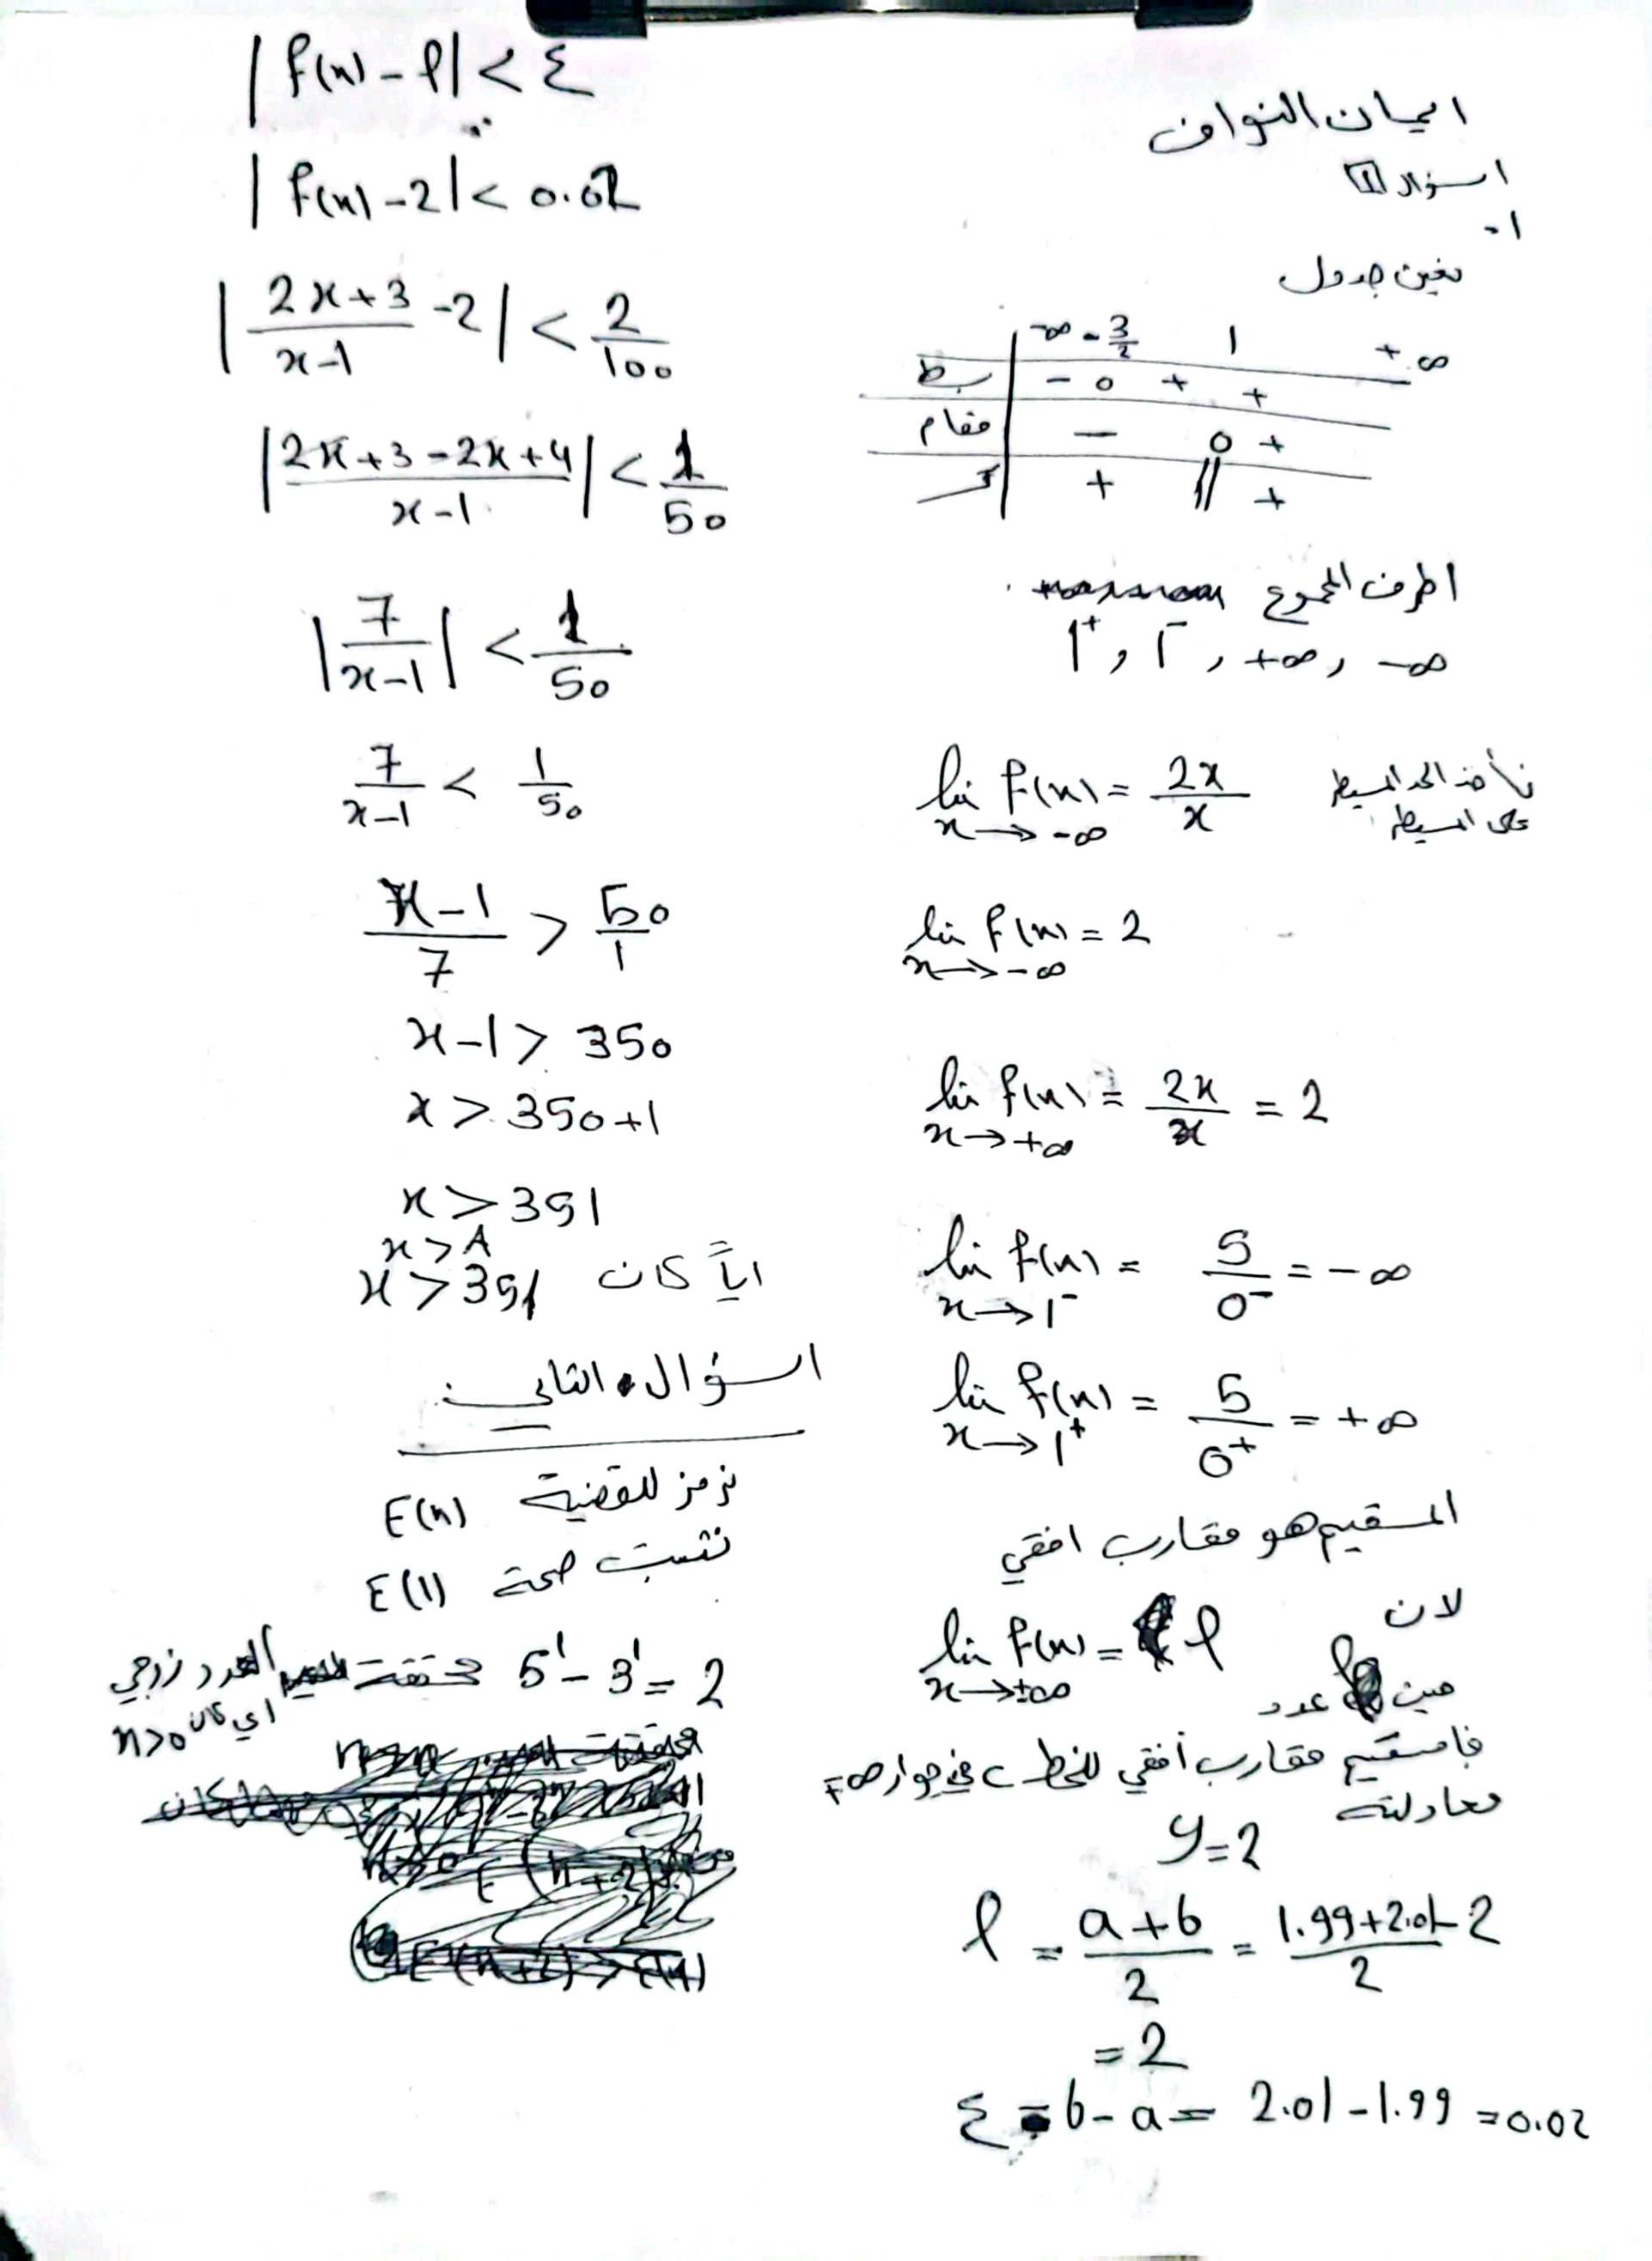 ايمان النواف
اسؤال 1
1-
نعين جدول
-∞ -3/2 1 +∞
بسط - 0 + +
مقام - 0 +
+ || +
اطرف المجموع
1⁺, 1⁻, +∞, -∞
lim f(x) = 2x/x نأخذ الحد المسيطر
x→-∞ على المسيطر
lim f(x) = 2
x→-∞
lim f(x) = 2x/x = 2
x→+∞
lim f(x) = 5/0⁻ = -∞
x→1⁻
lim f(x) = 5/0⁺ = +∞
x→1⁺
المسقيم هو مقارب افقي
لان
lim f(x) = ℓ
x→±∞
حين ℓ عدد
فامسقيم مقارب أفقي للخط C في جوار ∓∞
معادلته
y=2
ℓ = a+b/2 = 1.99+2.01/2 - 2
= 2
ε = b-a = 2.01-1.99 = 0.02
|f(x)-ℓ| < ε
|f(x)-2| < 0.02
|2x+3/x-1 -2| < 2/100
|2x+3-2x+4/x-1| < 1/50
|7/x-1| < 1/50
7/x-1 < 1/50
x-1/7 > 50/1
x-1 > 350
x > 350+1
x > 351
x > A
x > 351 اياً كان
اسؤال الثاني:
نرمز للقضية E(n)
نثبت صحة E(1)
5¹-3¹=2 محققة العدد زوجي
اي كان n>0